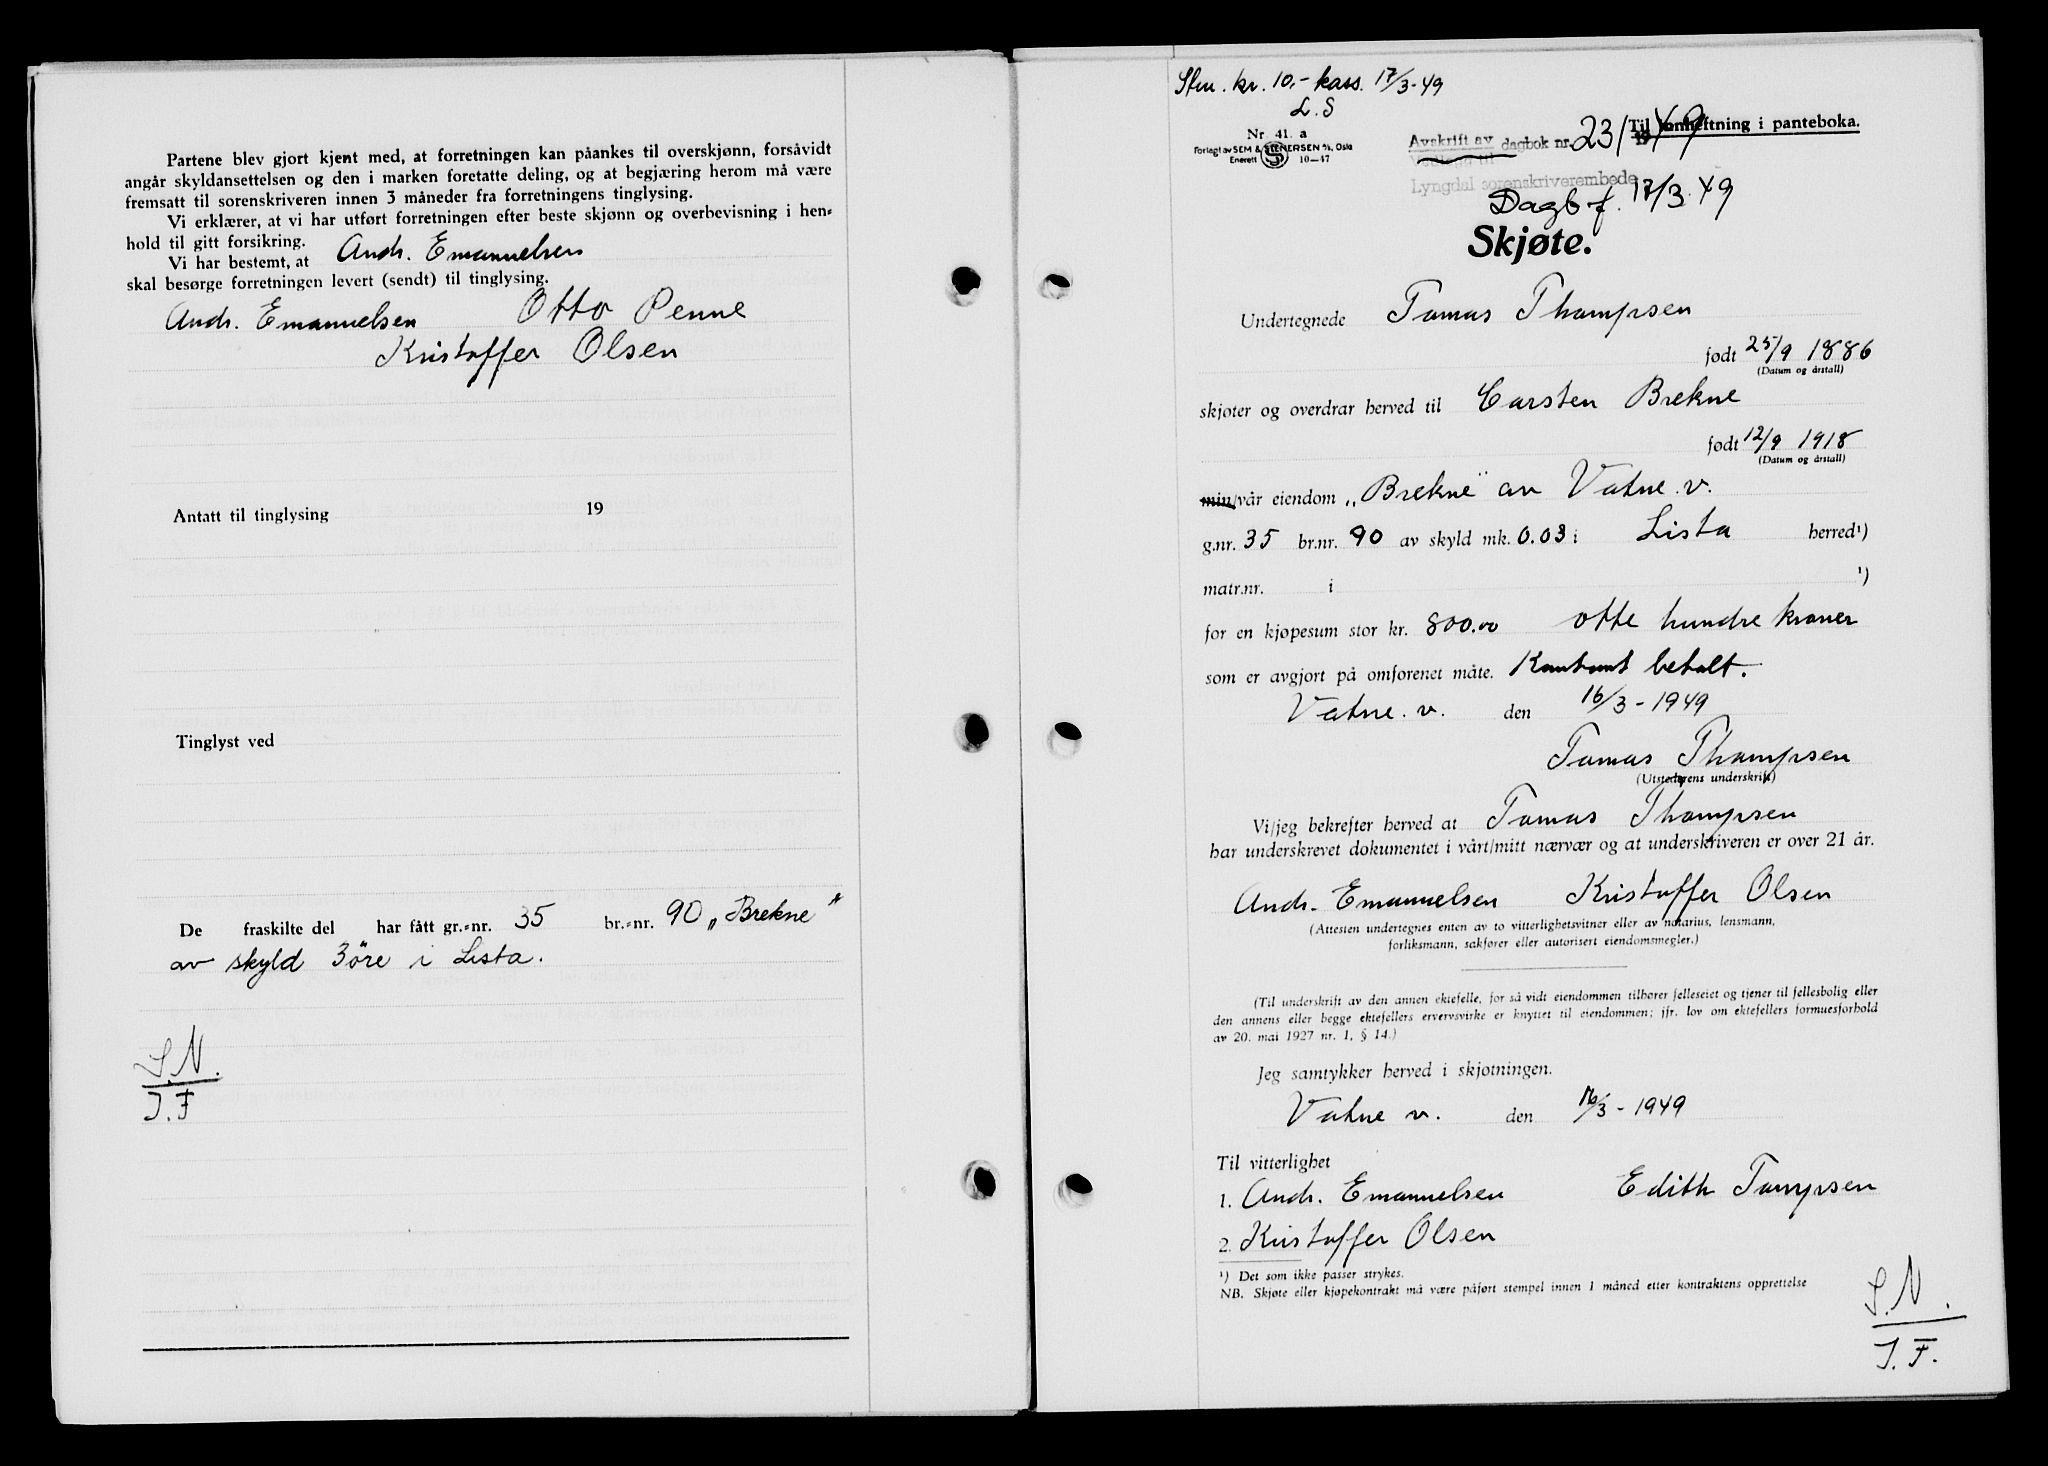 Partene blev gjort kjent med, at forretningen kan påankes til overskjønn, forsåvidt
angår skyldansettelsen og den i marken foretatte deling, og at begjæring herom må være
fremsatt til sorenskriveren innen 3 måneder fra forretningens tinglysing.
Vi erklærer, at vi har utført forretningen efter beste skjønn og overbevisning i hen-
hold til gitt forsikring.
Vi har bestemt, at Andr. Emanuelsen
skal besørge forretningen levert (sendt) til tinglysing.
Andr. Emanuelsen Otto Penne
Kristoffer Olsen
Antatt til tinglysing 19
Tinglyst ved
De fraskilte del har fått gr.-nr. 35 br.-nr. 90 „Brekne"
av skyld 3 øre i Lista.
S.N.
J.F
Stm. kr. 10,- kass. 17/3-49
L.S
Nr. 41. a
Forlagt av SEM & STENERSEN A/S, Oslo
Enerett 10—47
Til innheftning i panteboka.
Avskrift av dagbok nr. 231 1949
Lyngdal sorenskriverembede
Dagb f. 17/3.49
Skjøte.
Undertegnede Tomas Thompsen
født 25/9 1886
(Datum og årstall)
skjøter og overdrar herved til Carsten Brekne
født 12/9 1918
(Datum og årstall)
min/vår eiendom „Brekne" av Vatne. v.
g.nr. 35 br.nr. 90 av skyld mk. 0.03 i Lista herred¹)
matr.nr. i ¹)
for en kjøpesum stor kr. 800.00 otte hundre kroner
som er avgjort på omforenet måte. Kontant betalt.
Vatne. v. den 16/3-1949
Tomas Thompsen
(Utstederens underskrift)
Vi/jeg bekrefter herved at Tomas Thompsen
har underskrevet dokumentet i vårt/mitt nærvær og at underskriveren er over 21 år.
Andr. Emanuelsen Kristoffer Olsen
(Attesten undertegnes enten av to vitterlighetsvitner eller av notarius, lensmann,
forliksmann, sakfører eller autorisert eiendomsmegler.)
(Til underskrift av den annen ektefelle, for så vidt eiendommen tilhører felleseiet og tjener til fellesbolig eller
den annens eller begge ektefellers ervervsvirke er knyttet til eiendommen; jfr. lov om ektefellers formuesforhold
av 20. mai 1927 nr. 1, § 14.)
Jeg samtykker herved i skjøtningen.
Vatne v. den 16/3-1949
Til vitterlighet
1. Andr. Emanuelsen Edith Tompsen
2. Kristoffer Olsen
¹) Det som ikke passer strykes.
NB. Skjøte eller kjøpekontrakt må være påført stempel innen 1 måned etter kontraktens opprettelse
S.N.
J.F.